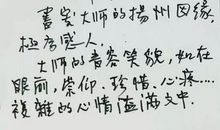 書寫大師的揚州因緣
極為感人.
大師的音容笑貌,如在
眼前,崇仰.珍惜.心疼....
複雜的心情溢滿文中.